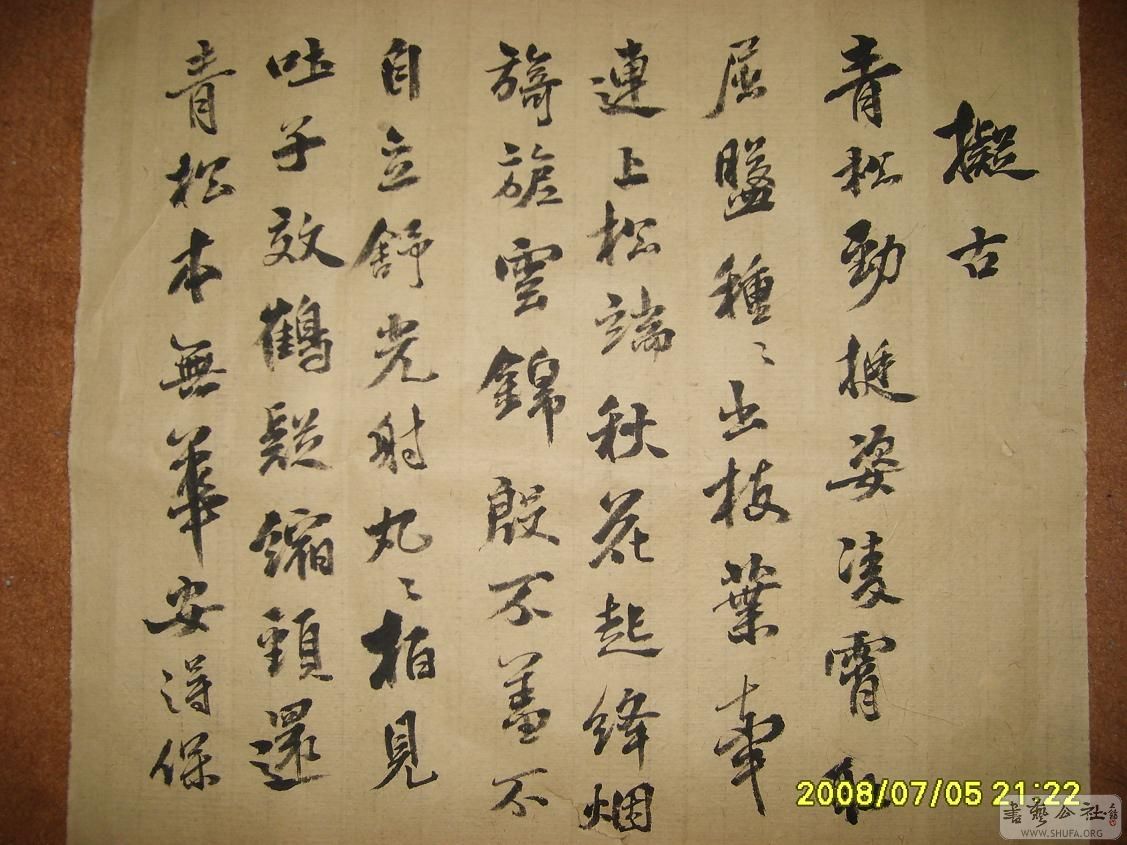 擬古
青松勁挺姿凌霄耻
屈盤種〻出枝葉牽
連上松端秋花起絳烟
旖旎雲錦殷不羞不
自立舒光射丸〻柏見
吐子效鶴疑縮頸還
青松本無華安得保
2008/07/05 21:22
書藝公社
WWW.SHUFA.ORG